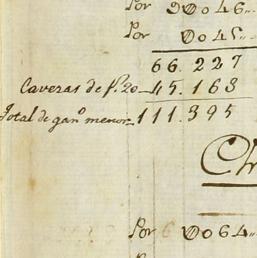 Por DO046..
Por D045..
66.227
Caveras de f.s 20 45.163
Total de gan.o menor 111.395
Por DO064..